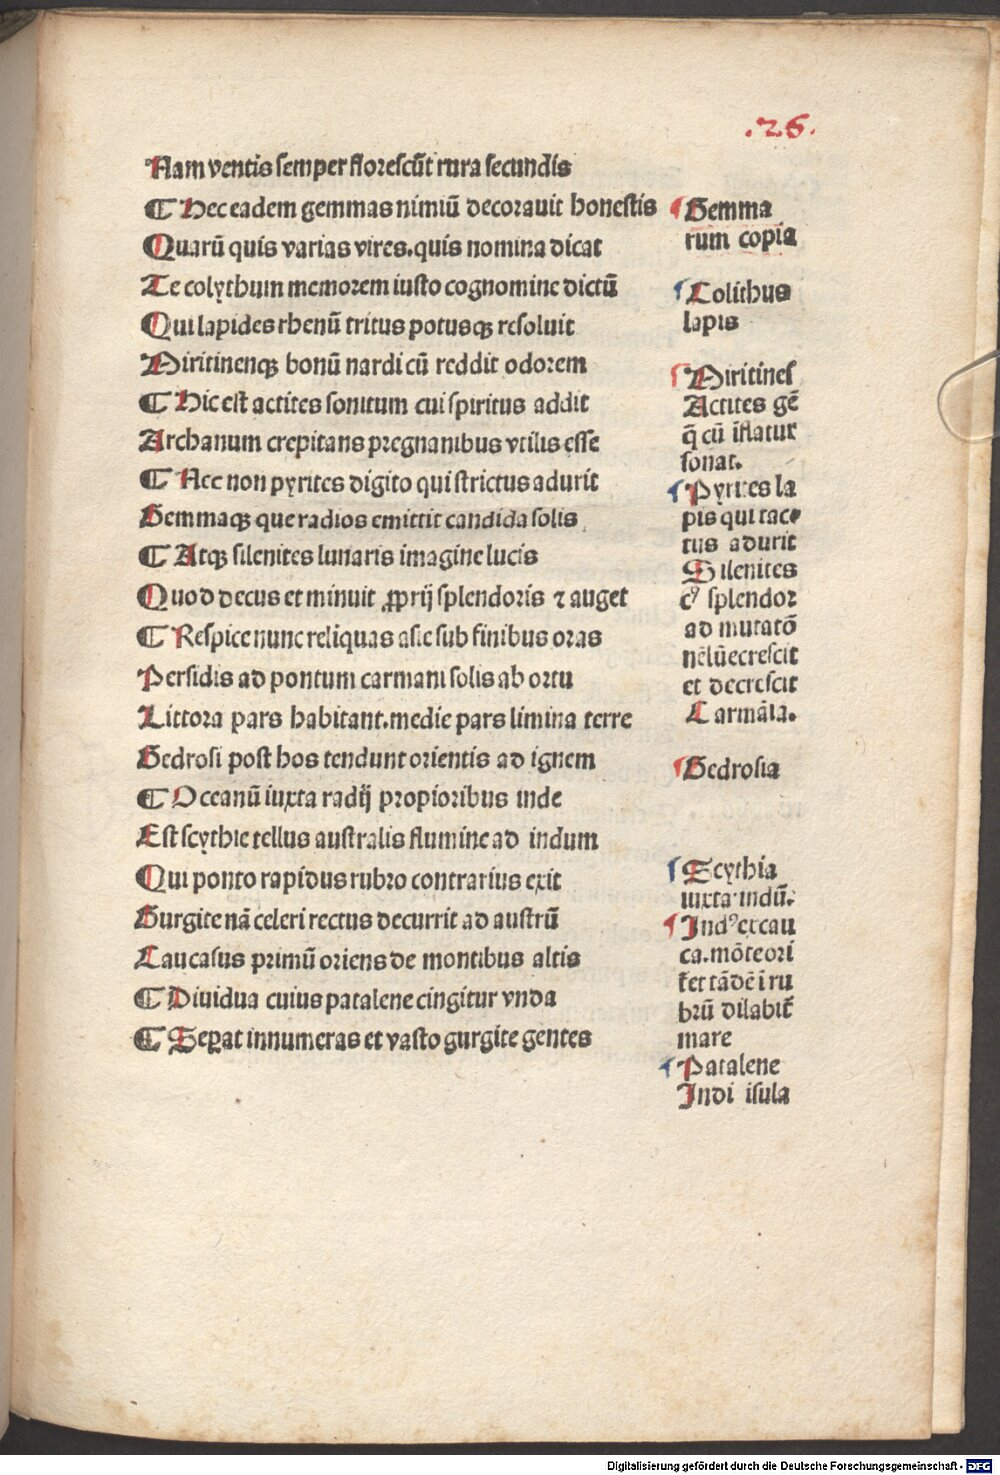 .26.
Nam ventis semper florescūt rura secundis
¶ Hec eadem gemmas nimiū decorauit honestis
Quarū quis varias vires.quis nomina dicat
Te colythum memorem iusto cognomine dictū
Qui lapides rhenū tritus potusqꝫ resoluit
Miritinenqꝫ bonū nardi cū reddit odorem
¶ Hic est actites sonitum cui spiritus addit
Archanum crepitans pregnanibus vtilis esse
¶ Nec non pyrites digito qui strictus adurit
Gemmaqꝫ que radios emittit candida solis
¶ Atqꝫ silenites lunaris imagine lucis
Quod decus et minuit ꝓprij splendoris ⁊ auget
¶ Respice nunc reliquas asie sub finibus oras
Persidis ad pontum carmani solis ab ortu
Littora pars habitant.medie pars limina terre
Gedrosi post hos tendunt orientis ad ignem
¶ Oceanū iuxta radij propioribus inde
Est scythie tellus australis flumine ad indum
Qui ponto rapidus rubro contrarius exit
Gurgite nā celeri rectus decurrit ad austrū
Caucasus primū oriens de montibus altis
¶ Diuidua cuius patalene cingitur vnda
¶ Seꝑat innumeras et vasto gurgite gentes
Gemma
rum copia
Colithus
lapis
Miritines
Actites gē
q̄ cū īflatur
sonat.
Pyrites la
pis qui tac
tus adurit
Silenites
cꝰ splendor
ad mutatō
nē lūe crescit
et decrescit
Carmāia.
Gedrosia
Scythia
iuxta indū.
Indꝰ et cau
ca.mōte ori
et tādē ī ru
brū dilabit᷑
mare
Patalene
Indi isula
Digitalisierung gefördert durch die Deutsche Forschungsgemeinschaft - DFG